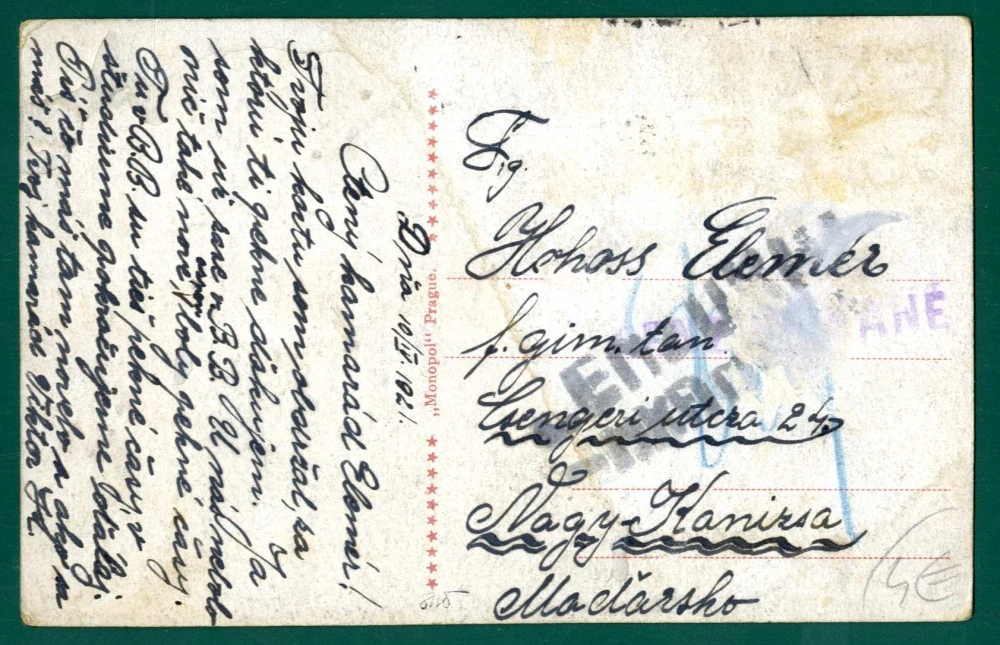 Dňa 10/II. 1921.
Ctený kamarád Elemér!
Tvoju kartu som obdržal, za
ktorú ti pekne ďakujem. Ja
som už zase v B.B. U nás nebolo
nič také nové, boly pekné časy.
Tu v B.B. sú tiež pekné časy v
študiume pokračujeme
Píš čo máš tam nového a ako sa
máš? Tvoj kamarád Viktor
„Monopol" Prague.
Fig.
Hohoss Elemér
f. gim. tan.
Csengeri utcza 24
Nagy-Kanizsa
Maďársko
4€